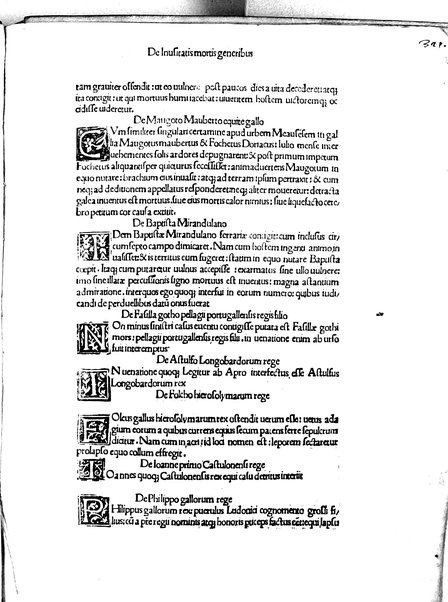 De Inusitatis mortis generibus
tam grauiter offendit: ut eo uulnere post paucos dies a uita decederet: atq;
ita contigit: ut qui mortuus humi iacebat: uiuentem hostem uictoremq; oc
cidisse uideretur.
De Maugoto Mauberto equite gallo
CVm similiter singulari certamine apud urbem Meausesem in gal
lia Maugotus maubertus & Fochetus Doriacus: Iulio mense inter
uehementes solis ardores depugnarent & post primum impetum
Fochetus aliquantisper quieturus secessisset: animaduertens Maugotum in
equo nutare: brachium eius inuasit: atq; ad terram ipsum pertraxit: & cum
neq; ad deditionem appellatus responderet: neq; aliter moueretur: detracta
galea inuentus est mortuus. siue eius mortis calor nimius: siue liquefacto cere/
bro pectum cor causa extitit.
De Baptista Mirandulano
IDem Baptistæ Mirandulano ferrariæ contigit: cum inclusus cir/
cumsepto campo dimicaret. Nam cum hostem ingenti animo in
uasisset: & is territus cum fugeret: statim in equo nutare Baptista
cœpit. Itaq; cum putaretur uulnus accepisse: exarmatus sine ullo uulnere:
imo sine illatæ percussionis signo mortuus est inuentus: magna astantium
admiratione. interquos ego quoq; interfui in eorum numero: quibus iudi/
candi de perduellibus datū onus fuerat
De Fasilla gotho pellagii portugallensis regis filio
NOn minus sinistri casus euentu contigisse putata est Fasillæ gothi
mors: pellagii portugallensis regis filii. in uenatione enim ab urso
fuit interemptus
De Astulfo Longobardorum rege
IN uenatione quoq; Legitur ab Apro interfectus esse Astulfus
Longobardorum rex
De Fulcho hierosolymarum rege
FOlcus gallus hierosolymarum rex ostendit uerum esse: uetus ada
gium eorum a quibus currens equus secum patens ferre sepulcrum
dicitur. Nam cum in acri; id loci nomen est: leporem sectaretur
prolapso equo collum effregit.
De Ioanne primo Castulonensi rege
IOannes quoq; Castulonensis rex equi casu detritus interiit
De Philippo gallorum rege
PHilippus gallorum rex puerulus Ludouici cognomento grossi fi/
lius: cū a pre regii nominis atq; honoris priceps factus eēt: equi lapsu